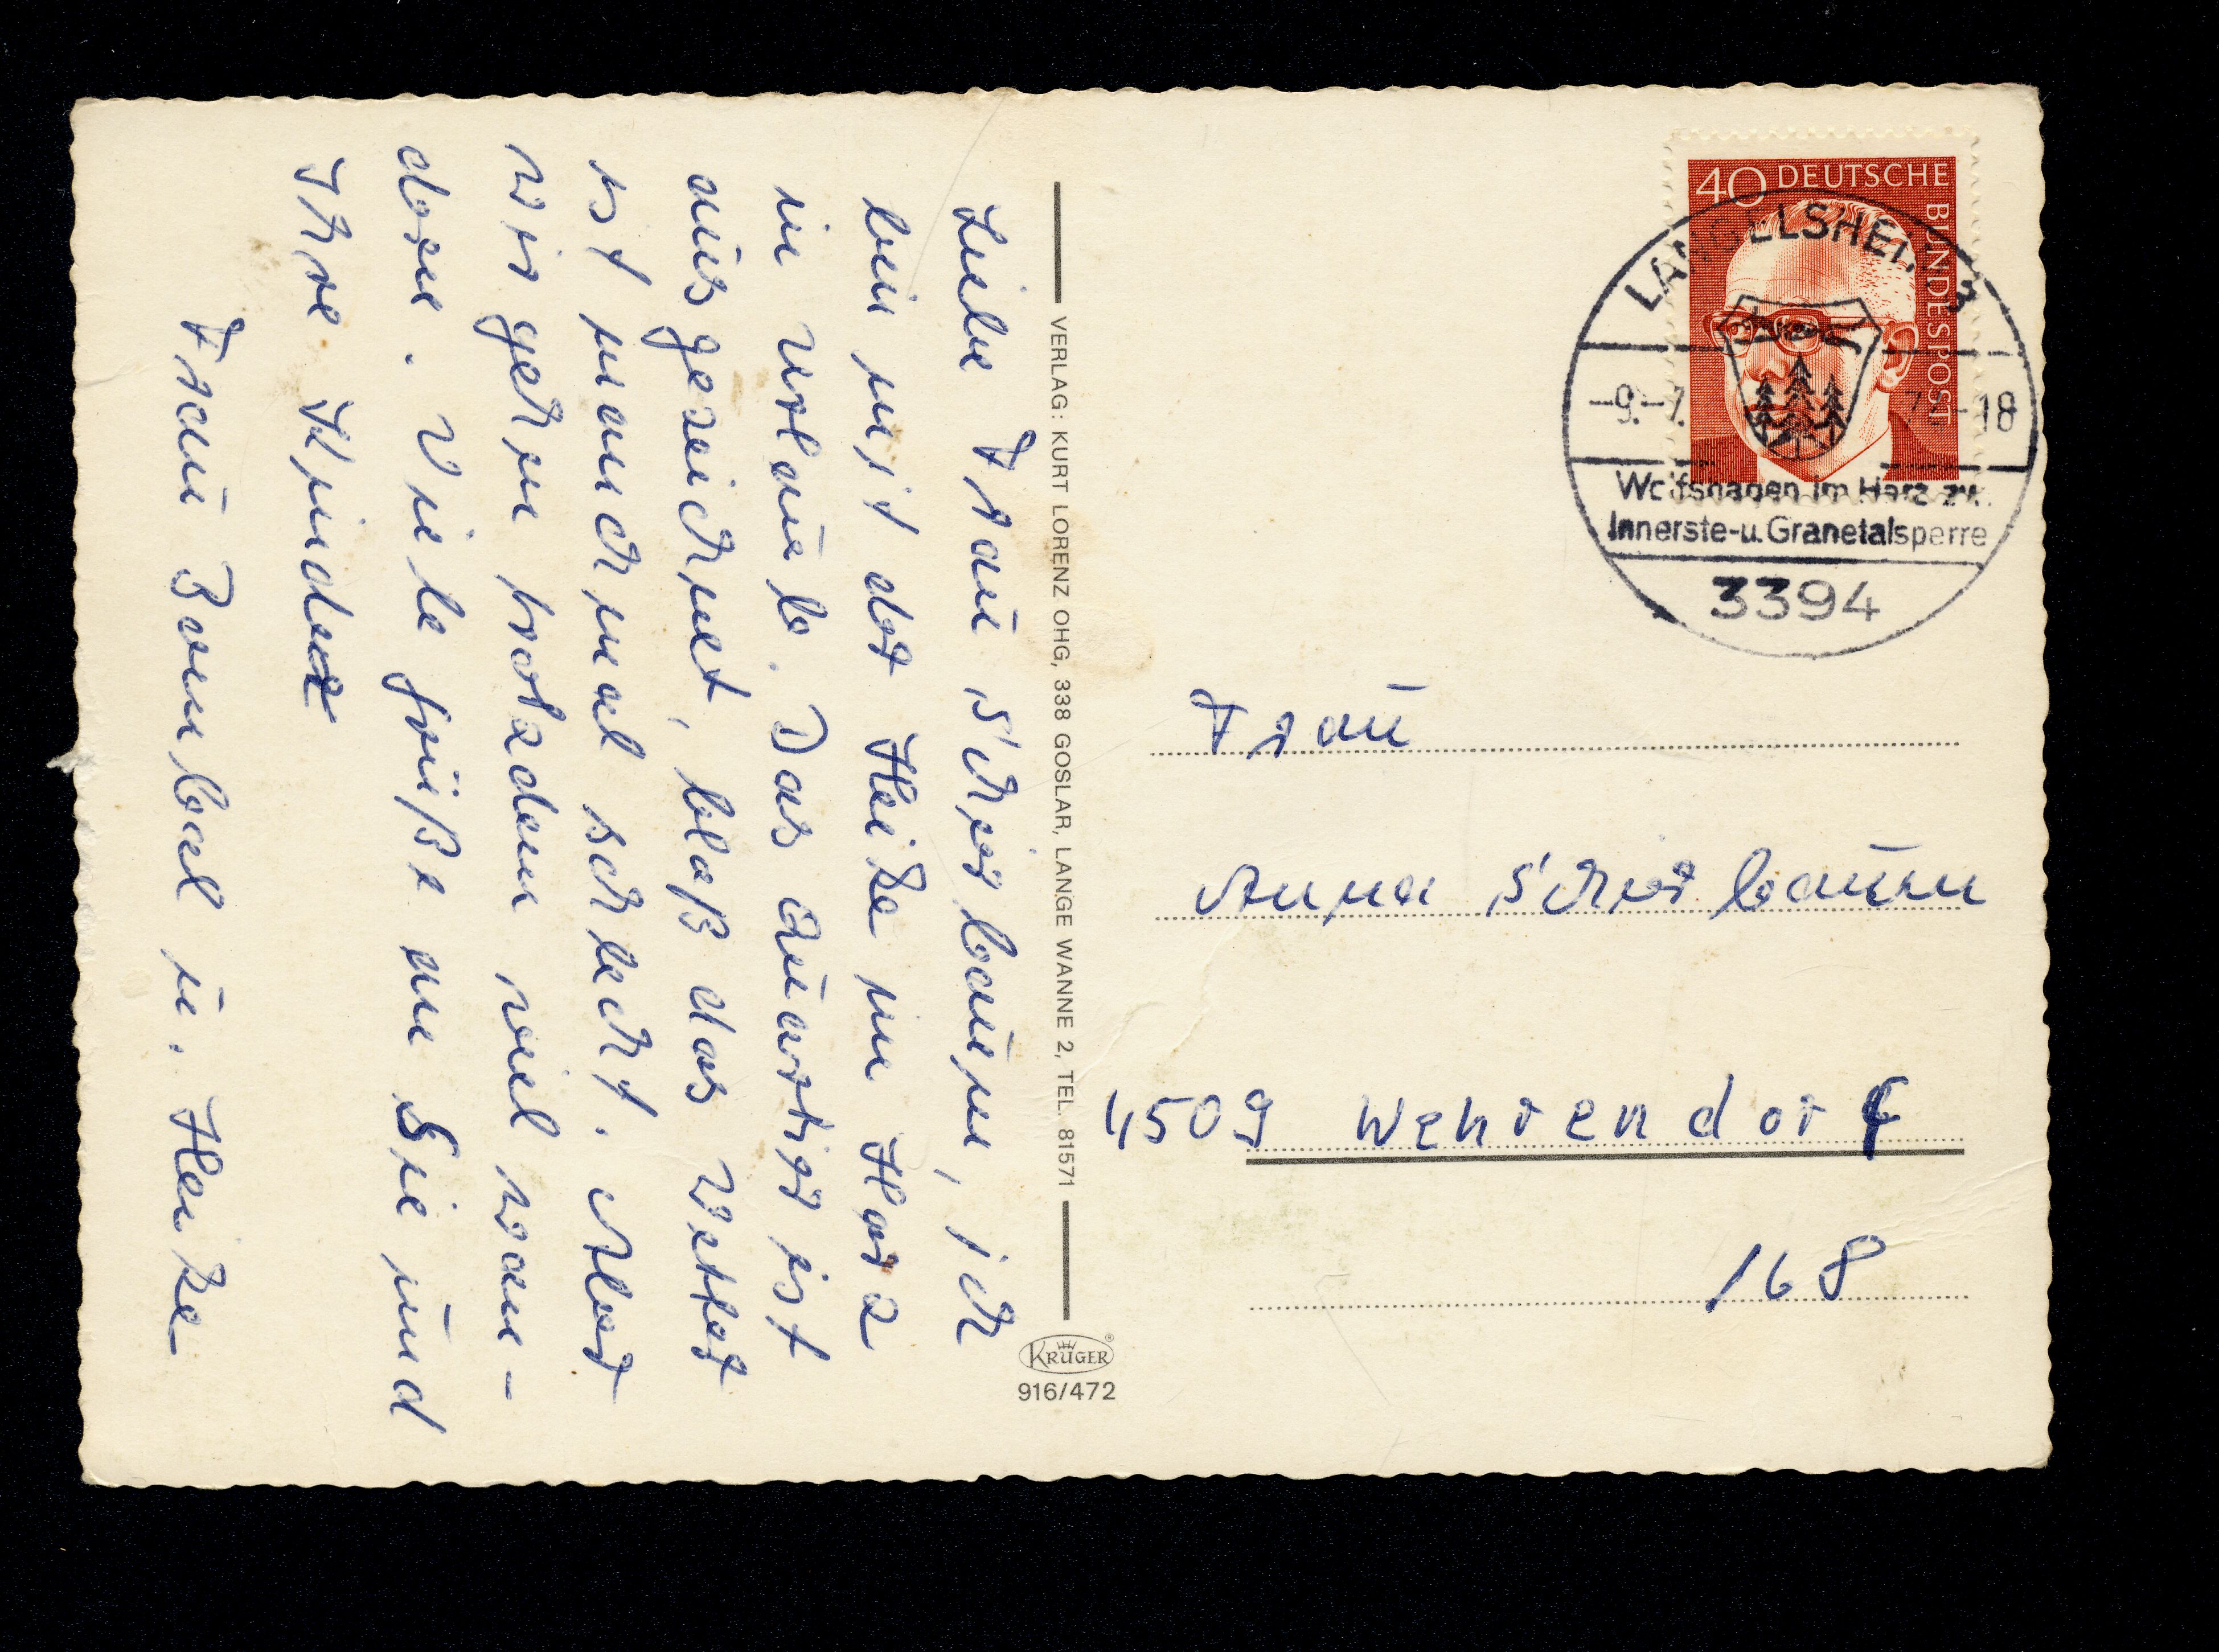 Liebe Frau Schierbaum, ich
bin mit der Heike im Harz
in Urlaub. Das Quartier ist
ausgezeichnet, bloß das Wetter
ist manchmal schlecht. Aber
wir gehen trotzdem viel wan-
dern. Viele Grüße an Sie und
Ihre Kinder
Frau Bombal u. Heike
VERLAG: KURT LORENZ OHG, 338 GOSLAR, LANGE WANNE 2, TEL. 81571
KRÜGER
916/472
40 DEUTSCHE BUNDESPOST
LANGELSHEIM 3
-9.-7. -18
Wolfshagen im Harz zw.
Innerste-u. Granetalsperre
3394
Frau
Anna Schierbaum
4509 Wehrendorf
168